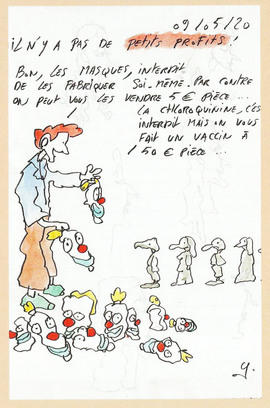 09/05/20
iL N'Y A PAS DE PETITS PROFITS!
BON, LES MASQUES, INTERDIT
DE LES FABRIQUER SOI-MÊME. PAR CONTRE
ON PEUT VOUS LES VENDRE 5 € PIÈCE...
LA CHLOROQUININE, C'ES
INTERDIT MAIS ON VOUS
FAIT UN VACCIN À
150 € PIÈCE...
y.